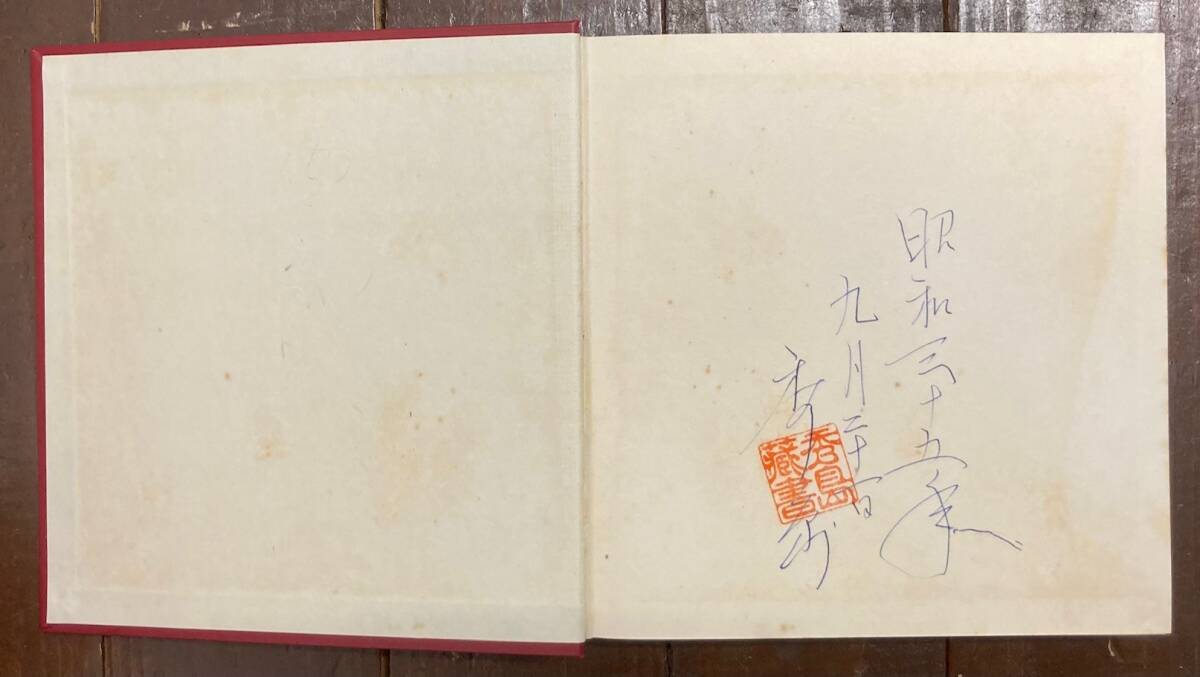 昭和三十五年
九月二十一日
秀島
蔵書